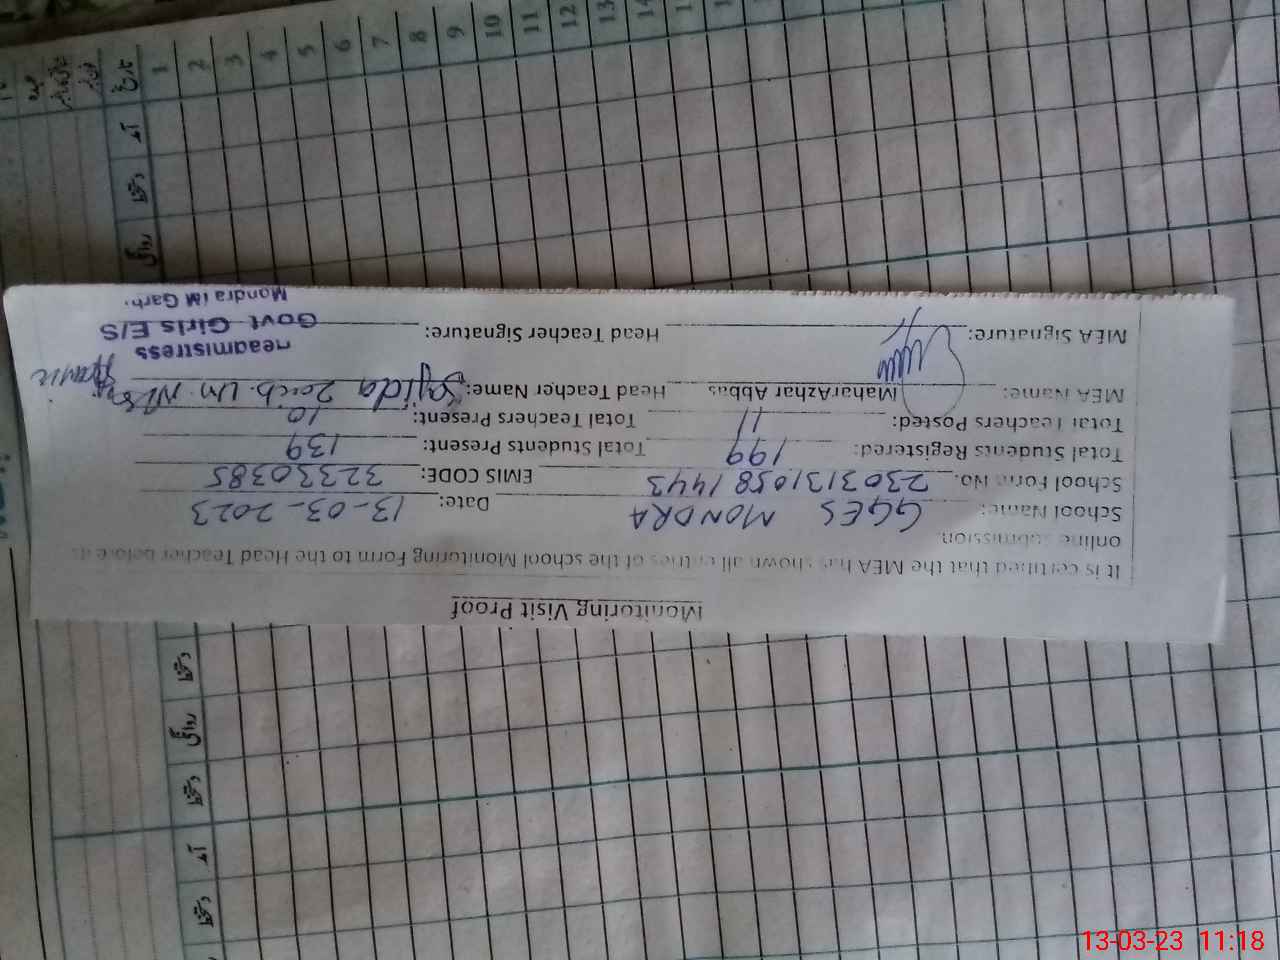 Monitoring Visit Proof
It is certified that the MEA has shown all entries of the school Monitoring Form to the Head Teacher before its
online submission.
School Name: GGES MONDRA Date: 13-03-2023
School Form No. 2303131058 1443 EMIS CODE: 32330385
Total Students Registered: 199 Total Students Present: 139
Total Teachers Posted: 11 Total Teachers Present: 10
MEA Name: MaharAzhar Abbas Head Teacher Name: Sajida
MEA Signature: Head Teacher Signature:
Headmistress
Govt Girls E/S
Mondra M Garh.
تاریخ 1 2 3 4 5 6 7 8 9 10 11 12 13 14
آمد
دستخط
روانگی
دستخط
روانگی
دستخط
آمد
دستخط
13-03-23 11:18